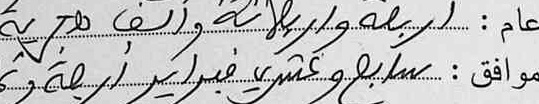 عام : أربعة وثلاثة وألف هجرية
موافق : سابع وعشري فبراير أربعة و